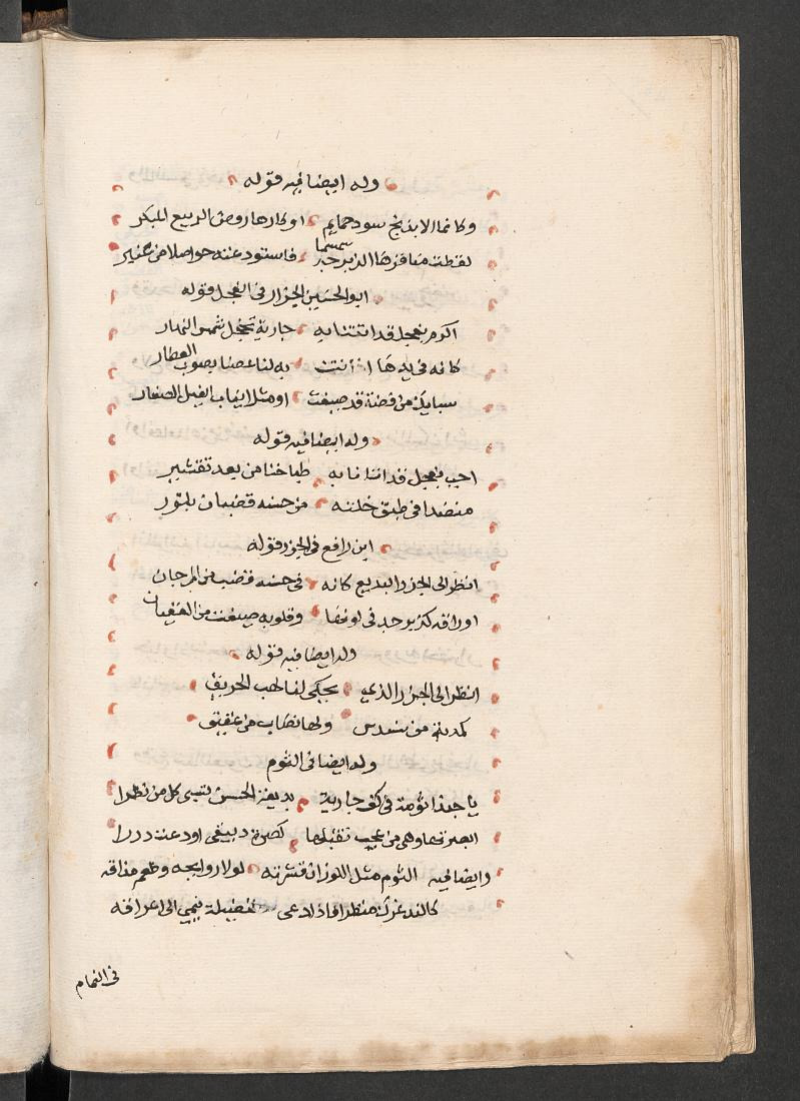 وله ايضا فيه قوله
وكانما الابدنج سود حمايم اوكارها روض الربيع المبكر
لقطت مناقرها الزبرجد سمسما فاستودعته حواصلا من عنبر
ابو الحسين الجزار فى الفجل قوله
اكرم بفجل قد اتتنا به جارية تخجل شمس النهار
كانه فى يدها اذ أتت به لنا عصنا بصوب القطار
سبايك من فضة قد صيغت او مثل انياب الفيل الصغار
وله ايضا فيه قوله
احبب بفجل قد اتانا به طباخنا من بعد تقشير
منضدا فى طبق خلته من حسنه قضبان بلور
ابن رافع فى الجزر قوله
انظر الى الجزر البديع كانه فى حسنه قضب من المرجان
اوراقه كزبرجد فى لونها وقلوبه صيغت من العقيان
وله ايضا فيه قوله
انظر الى الجزر الذى يحكى لنا لهب الحريق
كمدية من سندس ولها نصاب من عقيق
وله ايضا فى الثوم
يا حبذا ثومة فى كف جارية بديعة الحسن تسبى كل من نظرا
ابصرتها وهى من عجب تقبلها كصرة دبيقى اودعت دررا
وايضا فيه الثوم مثل اللوز ان قشرته لولا روايحه وطعم مذاقه
كالند غرك منظرا فاذا دعى لفضيلة ينمى الى اعراقه
فى النمام